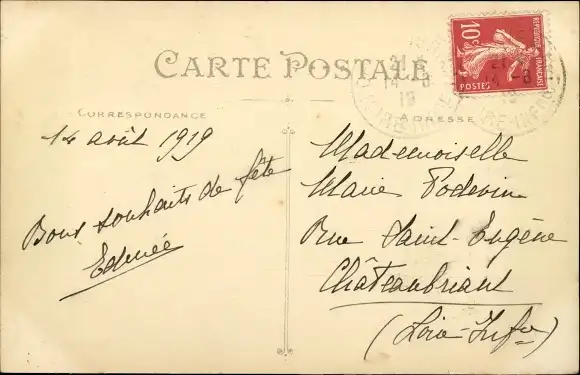 CARTE POSTALE
CORRESPONDANCE
ADRESSE
10c
REPUBLIQUE FRANÇAISE
POSTES
21
14 -8
19
14 août 1919
Bons souhaits de fête
Edmée
Mademoiselle
Marie Podevin
Rue Saint-Eugène
Châteaubriant
(Loire-Infre)